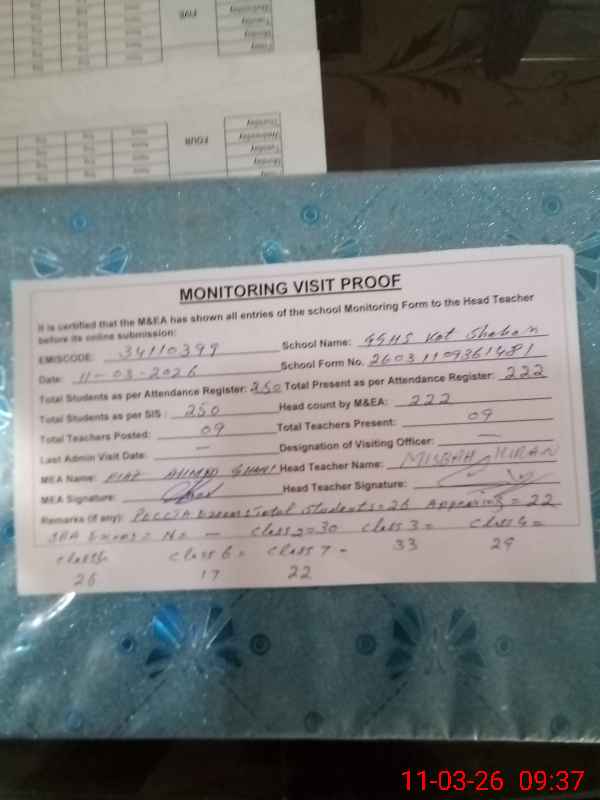 FIVE
Wednesday
Tuesday
Monday
Friday
FOUR
Thursday
Wednesday
Tuesday
Monday
MONITORING VISIT PROOF
It is certified that the M&EA has shown all entries of the school Monitoring Form to the Head Teacher
before its online submission:
EMISCODE: 34110399 School Name: GGHS Kot Shaban
Date: 11-03-2026 School Form No. 26031109361481
Total Students as per Attendance Register: 250 Total Present as per Attendance Register: 222
Total Students as per SIS : 250 Head count by M&EA: 222
Total Teachers Posted: 09 Total Teachers Present: 09
Last Admin Visit Date: — Designation of Visiting Officer: —
MEA Name: AHMED Head Teacher Name: MISBAH KIRAN
MEA Signature: Head Teacher Signature:
Remarks (if any): Total Students = 26 Appearing = 22
Class 2 = 30 Class 3 = Class 4 =
33 29
Class 6 = Class 7 =
26 17 22
11-03-26 09:37